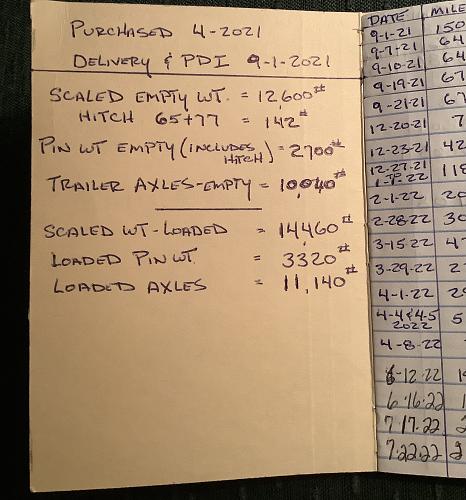 PURCHASED 4-2021
DELIVERY & PDI 9-1-2021
SCALED EMPTY WT. = 12,600#
HITCH 65+77 = 142#
PIN WT EMPTY (INCLUDES HITCH) = 2700#
TRAILER AXLES-EMPTY = 10,040#
SCALED WT-LOADED = 14,460#
LOADED PIN WT = 3320#
LOADED AXLES = 11,140#
DATE MILE
9-1-21 150
9-7-21 64
9-10-21 64
9-19-21 67
9-21-21 67
12-20-21 7
12-23-21 42
12-27-21
1-22 118
2-1-22 20
2-28-22 30
3-15-22 4
3-29-22 2
4-1-22 20
4-4&4-5 5
2022
4-8-22
6-12-22 1
6-16-22 1
7-17-22 2
7-22-22 2